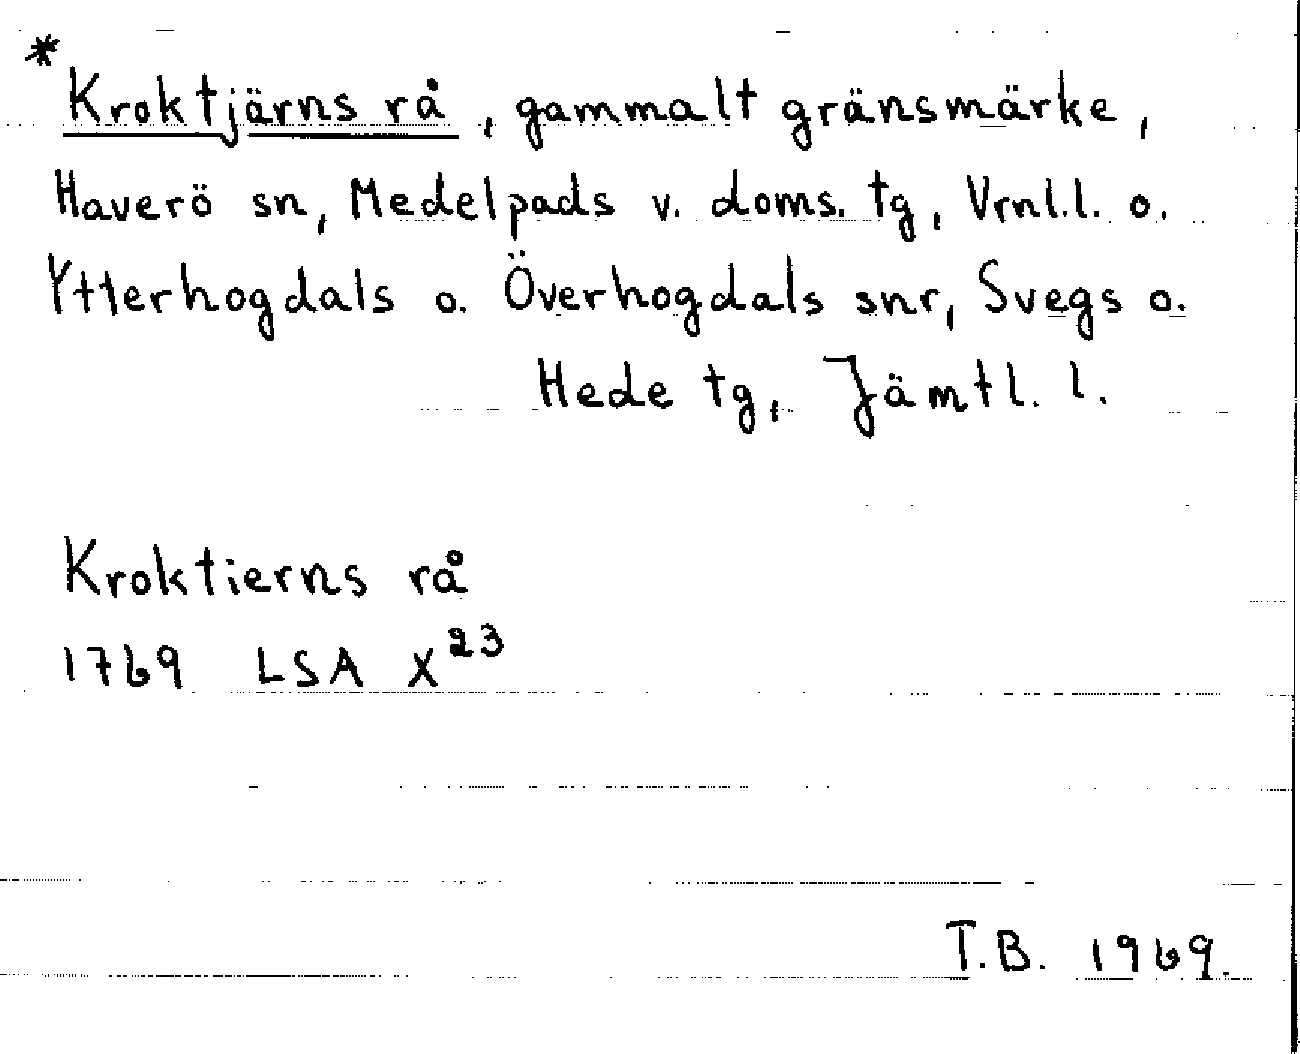 * Kroktjärns rå, gammalt gränsmärke,
Haverö sn, Medelpads v. doms. tg, Vrnl.l. o.
Ytterhogdals o. Överhogdals snr, Svegs o.
Hede tg, Jämtl. l.
Kroktierns rå
1769 LSA X²³
T.B. 1969.